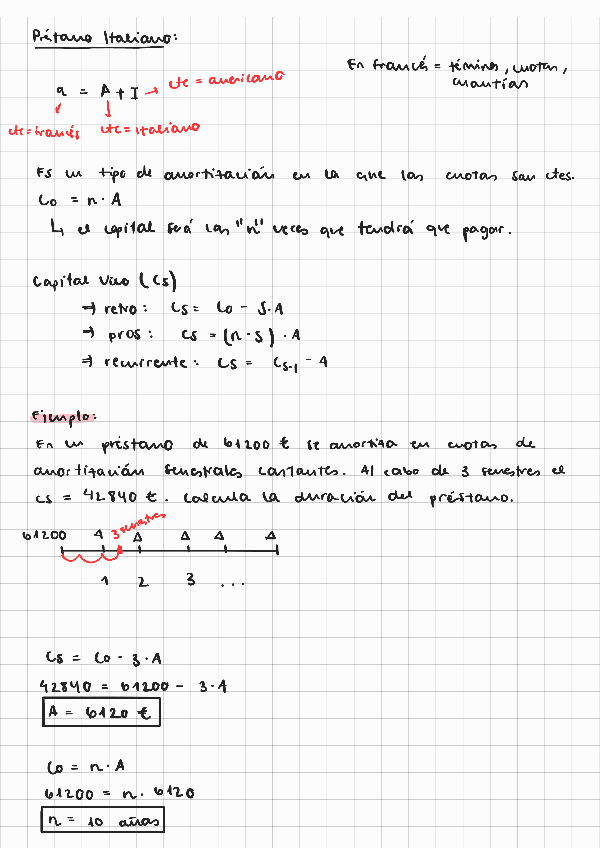 Préstamo Italiano:
En francés = términos, cuotas,
cuantías
a = A + I → cte = americano
cte = francés cte = italiano
Es un tipo de amortización en la que las cuotas son ctes.
Co = n · A
↳ el capital será las "n" veces que tendrá que pagar.
Capital Vivo (Cs)
→ retro: Cs = Co - S · A
→ pros: Cs = (n - s) · A
→ recurrente: Cs = Cs-1 - A
Ejemplo:
En un préstamo de 61200 € se amortiza en cuotas de
amortización semestrales constantes. Al cabo de 3 semestres el
Cs = 42840 €. Calcula la duración del préstamo.
3 semestres
61200 A A A A A
1 2 3 ...
Cs = Co - 3 · A
42840 = 61200 - 3 · A
A = 6120 €
Co = n · A
61200 = n · 6120
n = 10 años